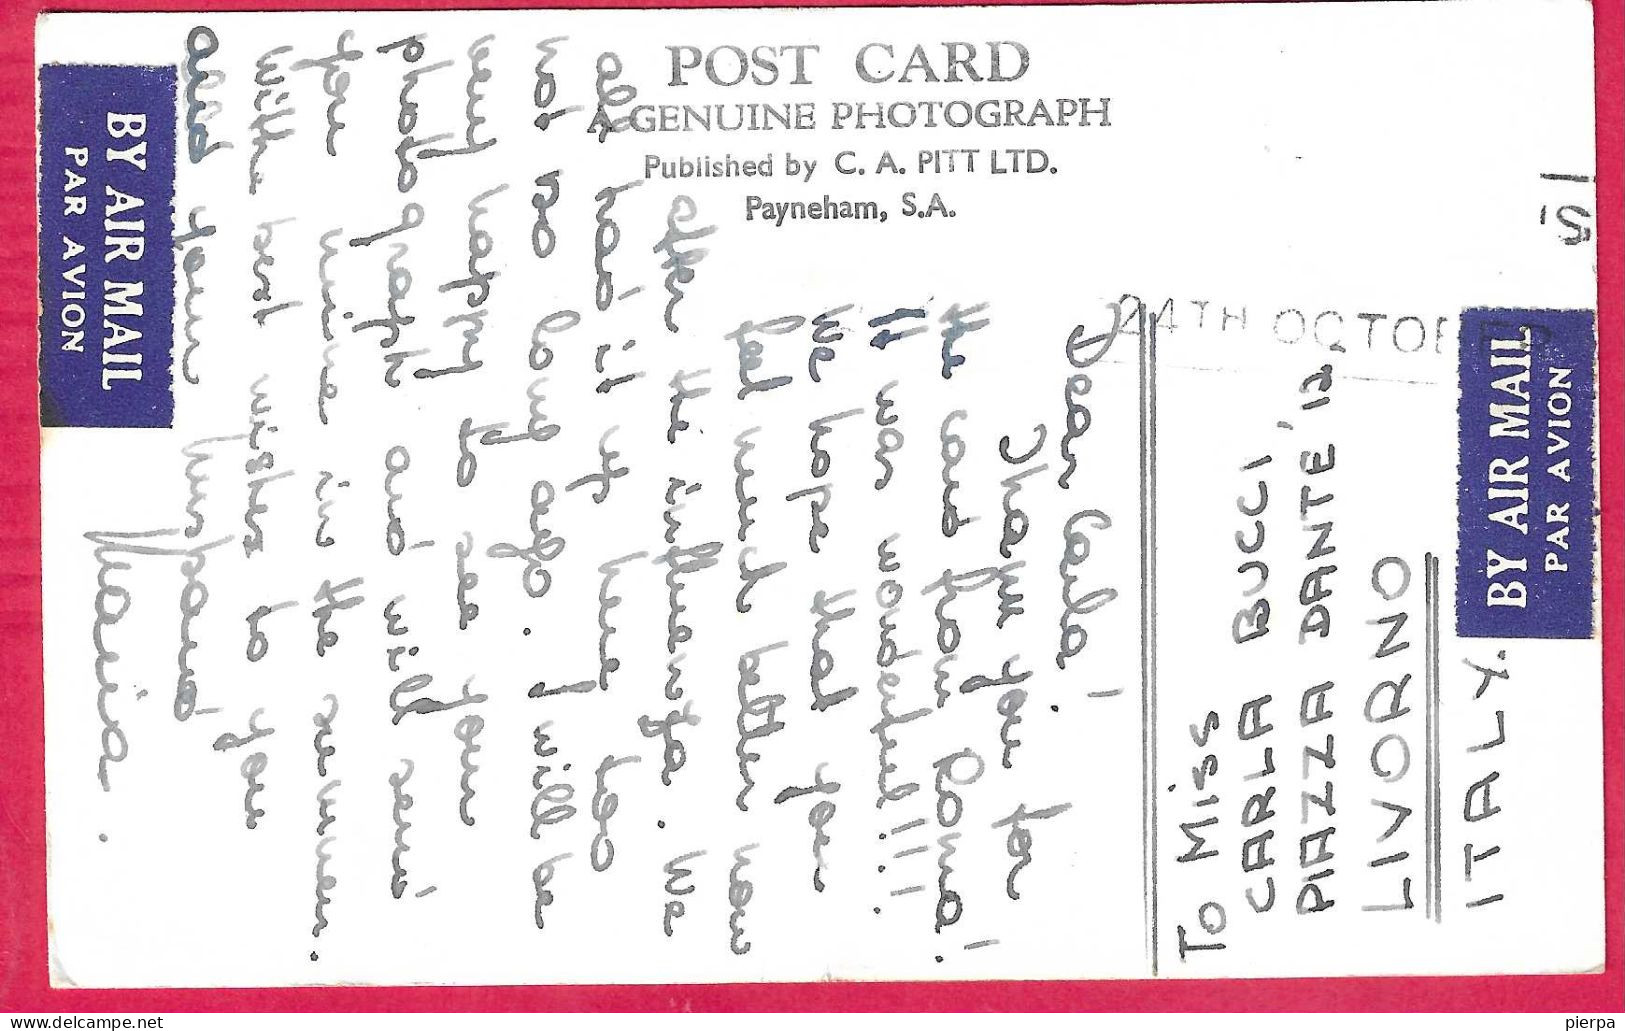 POST CARD
A GENUINE PHOTOGRAPH
Published by C. A. PITT LTD.
Payneham, S.A.
24TH OCTOBER
1
5'
Dear Carla!
Thank you for
the card from Roma!
It was wonderful!!!
We hope that you
feel much better now
after the influenza. We
all had it up here too
not so long ago. I will be
very happy to see your
photograph and will send
you mine in the summer.
With best wishes to you
and your
Maria.
To Miss
CARLA BUCCI,
PIAZZA DANTE '12,
LIVORNO
ITALY.
BY AIR MAIL
PAR AVION
BY AIR MAIL
PAR AVION
pierpa